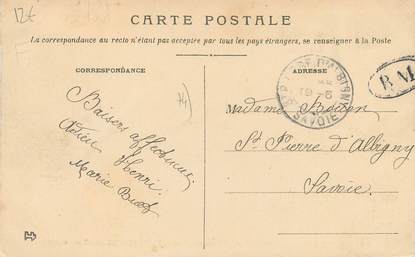 12€
CARTE POSTALE
La correspondance au recto n'étant pas acceptée par tous les pays étrangers, se renseigner à la Poste
CORRESPONDANCE
ADRESSE
74
B.M
SAVOIE
Baisers affectueux
Henri
Marie
Madame
St Pierre d'Albigny
Savoie